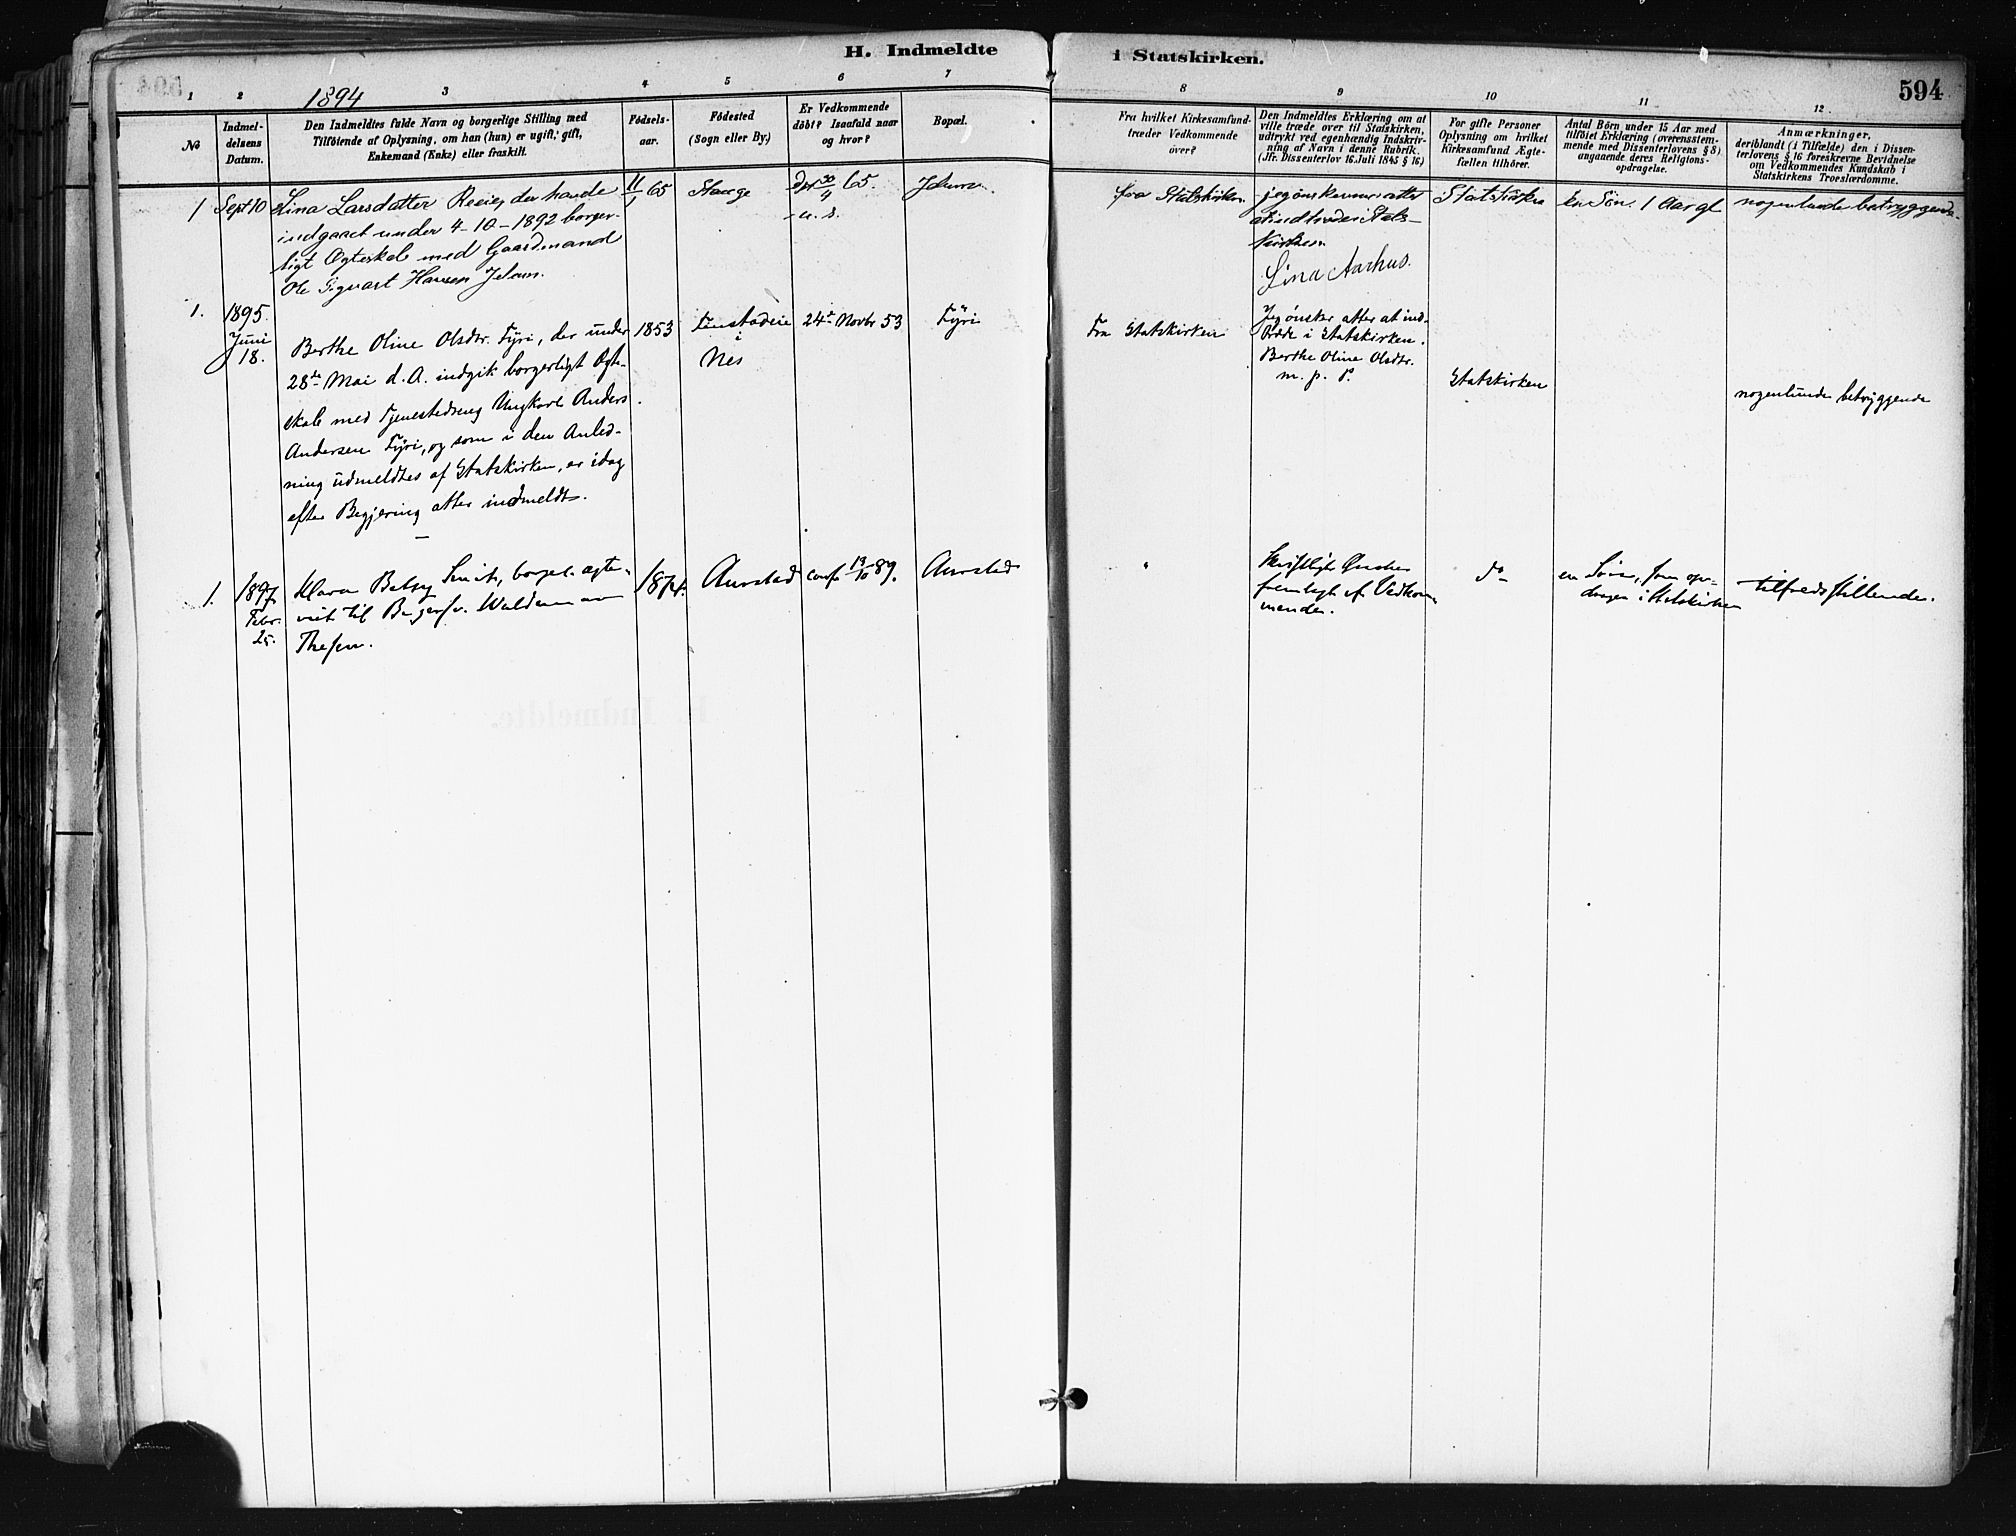 H. Indmeldte i Statskirken.
594
1 2 3 4 5 6 7 8 9 10 11 12
1894
№
Indmel-
delsens
Datum.
Den Indmeldtes fulde Navn og borgerlige Stilling med
Tilföiende af Oplysning, om han (hun) er ugift, gift,
Enkemand (Enke) eller fraskilt.
Födsels-
aar.
Födested
(Sogn eller By.)
Er Vedkommende
döbt? Isaafald naar
og hvor?
Bopæl.
Fra hvilket Kirkesamfund-
træder Vedkommende
over?
Den Indmeldtes Erklæring om at
ville træde over til Statskirken,
udtrykt ved egenhændig Indskriv-
ning af Navn i denne Rubrik.
(Jfr. Dissenterlov 16. Juli 1845 § 16)
For gifte Personer
Oplysning om hvilket
Kirkesamfund Ægte-
fællen tilhörer.
Antal Börn under 15 Aar med
tilföiet Erklæring (overensstem-
mende med Dissenterlovens § 8)
angaaende deres Religions-
opdragelse.
Anmærkninger,
deriblandt (i Tilfælde) den i Dissen-
terlovens § 16 foreskrevne Bevidnelse
om Vedkommendes Kundskab i
Statskirkens Troeslærdomme.
1
Sept 10
Lina Larsdatter der havde
indgaaet under 4-10-1892 borger-
ligt Ægteskab med Gaardmand
Ole Sigvart Hansen
11/1 65
Stange
30/4 65.
fra Statskirken
jeg ønsker atter
at indtræde i Stats-
kirken
Lina Aarhus.
Statskirken
En Søn. 1 Aar gl
nogenlunde betryggende
1.
1895.
Juni
18.
Berthe Oline Olsdr. Fyri, der under
28de Mai d. A. indgik borgerligt Ægte-
skab med Tjenestedreng Ungkarl Anders
Andersen Fyri, og som i den Anled-
ning udmeldtes af Statskirken, er idag
efter Begjering atter indmeldt.
1853
i
Nes
24de Novbr 53
Fyri
Fra Statskirken
Jeg ønsker atter at ind-
træde i Statskirken.
Berthe Oline Olsdtr.
m. p. P.
Statskirken
nogenlunde betryggende
1.
1897
Febr.
25.
Klara Betsy Smith, borgel. ægte-
viet til Waldemar
Thesen.
1874.
Aurstad
conf. 13/10 89.
Aurstad
"
Skriftligt Ønske
fremlagt af Vedkom-
mende.
do
en Søn, som op-
drages i Statskirken
tilfredsstillende.